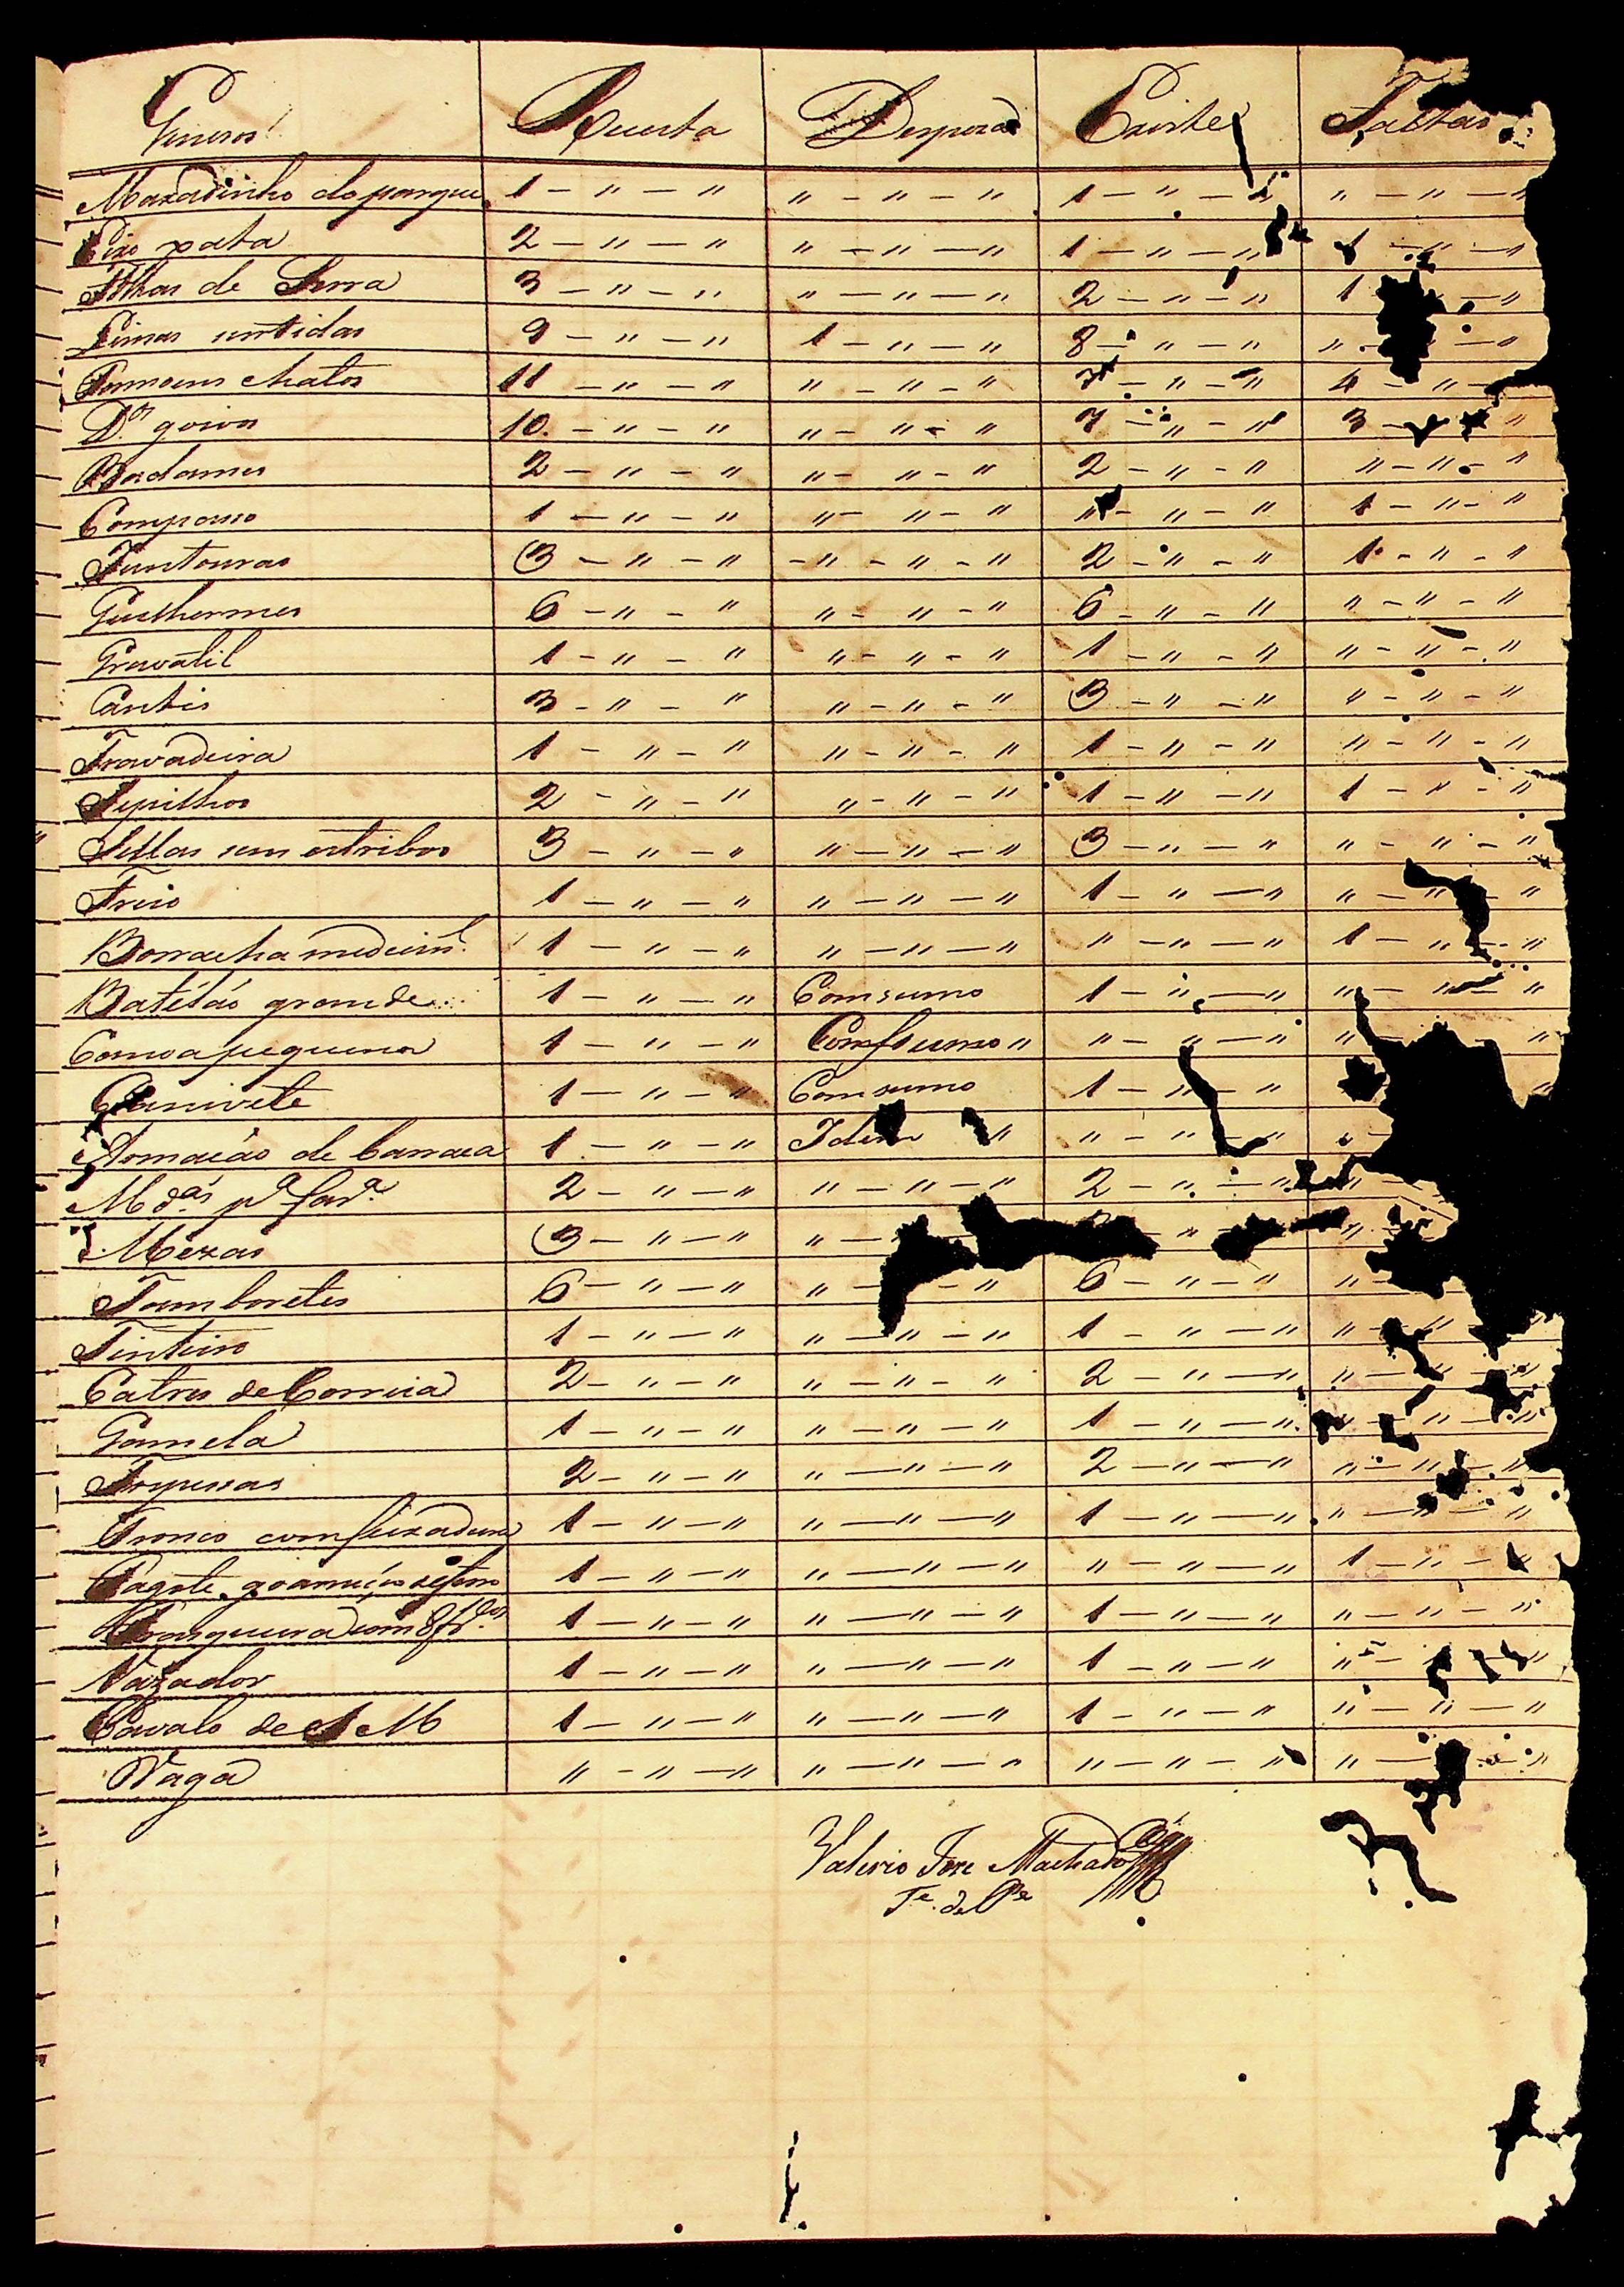 Generos Receita Despeza Existe Faltas
Maxadinho do parque 1 - " - " " - " - " 1 - " - " " - " - "
Eixo pata 2 - " - " " - " - " 1 - " - " 1 - " - "
Folhas de Serra 3 - " - " " - " - " 2 - " - " 1 - "
Limas surtidas 9 - " - " 1 - " - " 8 - " - " " - "
Formoens chatos 11 - " - " " - " - " 7 - " - " 4 - " -
D.os goivos 10. - " - " " - " - " 7 - " - " 3 - "
Badames 2 - " - " " - " - " 2 - " - " " - " - "
Compasso 1 - " - " " - " - " " - " - " 1 - " - "
Juntouras 3 - " - " - " - " - " 2 - " - " 1 - " - "
Guilhermes 6 - " - " " - " - " 6 - " - " " - " - "
Gravatil 1 - " - " " - " - " 1 - " - " " - " - "
Cantis 3 - " - " " - " - " 3 - " - " " - " - "
Travadeira 1 - " - " " - " - " 1 - " - " " - " - "
Sepilhos 2 - " - " " - " - " 1 - " - " 1 - " - "
Sellas sem estribos 3 - " - " " - " - " 3 - " - " " - " - "
Freio 1 - " - " " - " - " 1 - " - " " - " - "
Borracha medicin.l 1 - " - " " - " - " " - " - " 1 - " - "
Batélão grande 1 - " - " Comsumo 1 - " - " " - " - "
Canoa pequena 1 - " - " Comsumo " " - " - " " "
Canivete 1 - " - " Comsumo 1 - " - " "
Armacão de barraca 1 - " - " Idem " " - " - "
M d.as p.a Far.a 2 - " - " " - " - " 2 - " - " "
Mezas 3 - " - " " - 3 - " "
Tamboretes 6 - " - " " - " 6 - " - " " -
Tinteiro 1 - " - " " - " - " 1 - " - " " - "
Catres de Correia 2 - " - " " - " - " 2 - " - " " - " - "
Gamela 1 - " - " " - " - " 1 - " - " " - " - "
Tripessas 2 - " - " " - " - " 2 - " - " " - " - "
Tronco com feixadura 1 - " - " " - " - " 1 - " - " " - " - "
1 - " - " " - " - " " - " - " 1 - " -
1 - " - " " - " - " 1 - " - " " - " - "
Vazador 1 - " - " " - " - " 1 - " - " " - "
Cavalo de A M 1 - " - " " - " - " 1 - " - " " - " - "
Vaga " - " - " " - " - " " - " - " " - "
Valerio Jose Machado
T.e de P.e